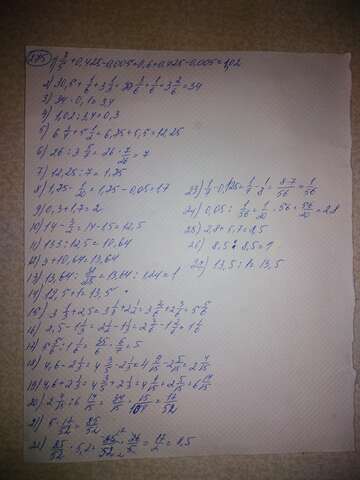 275 1) 3/5+0,425-0,005=0,6+0,425-0,005=1,02
2) 30,5+1/6+3 1/3=30 1/2+1/6+3 2/6=34
3) 34·0,1=3,4
4) 1,02:3,4=0,3
5) 6 1/4+5 1/2=6,25+5,5=12,25
6) 26:3 5/7=26·7/26=7
7) 12,25:7=1,75
8) 1,75-1/20=1,75-0,05=1,7
9) 0,3+1,7=2
10) 14-3/2=14-1,5=12,5
11) 133:12,5=10,64
12) 3+10,64=13,64
13) 13,64:
14) 12,5+1=13,5
15) 3 1/3+2,5=3 1/3+2 1/2=3 2/6+2 3/6=5 5/6
16) 2,5-1 1/3=2 1/2-1 1/3=2 3/6-1 2/6=1 1/6
17) 5 5/6:1 1/6=35/6·6/7=5
18) 4,6-2 1/3=4 3/5-2 1/3=4 9/15-2 5/15=2 4/15
19) 4,6+2 1/3=4 3/5+2 1/3=4 9/15+2 5/15=6 14/15
20) 2 4/15:6 14/15=34/15·15/104=17/52
21)
22) 85/52·5,2=85/52·26/5=17/2=8,5
23) 1/7-0,125=1/7-1/8=8-7/56=1/56
24) 0,05:1/56=1/20·56=56/20=2,8
25) 2,8+5,7=8,5
26) 8,5:8,5=1
27) 13,5:1=13,5